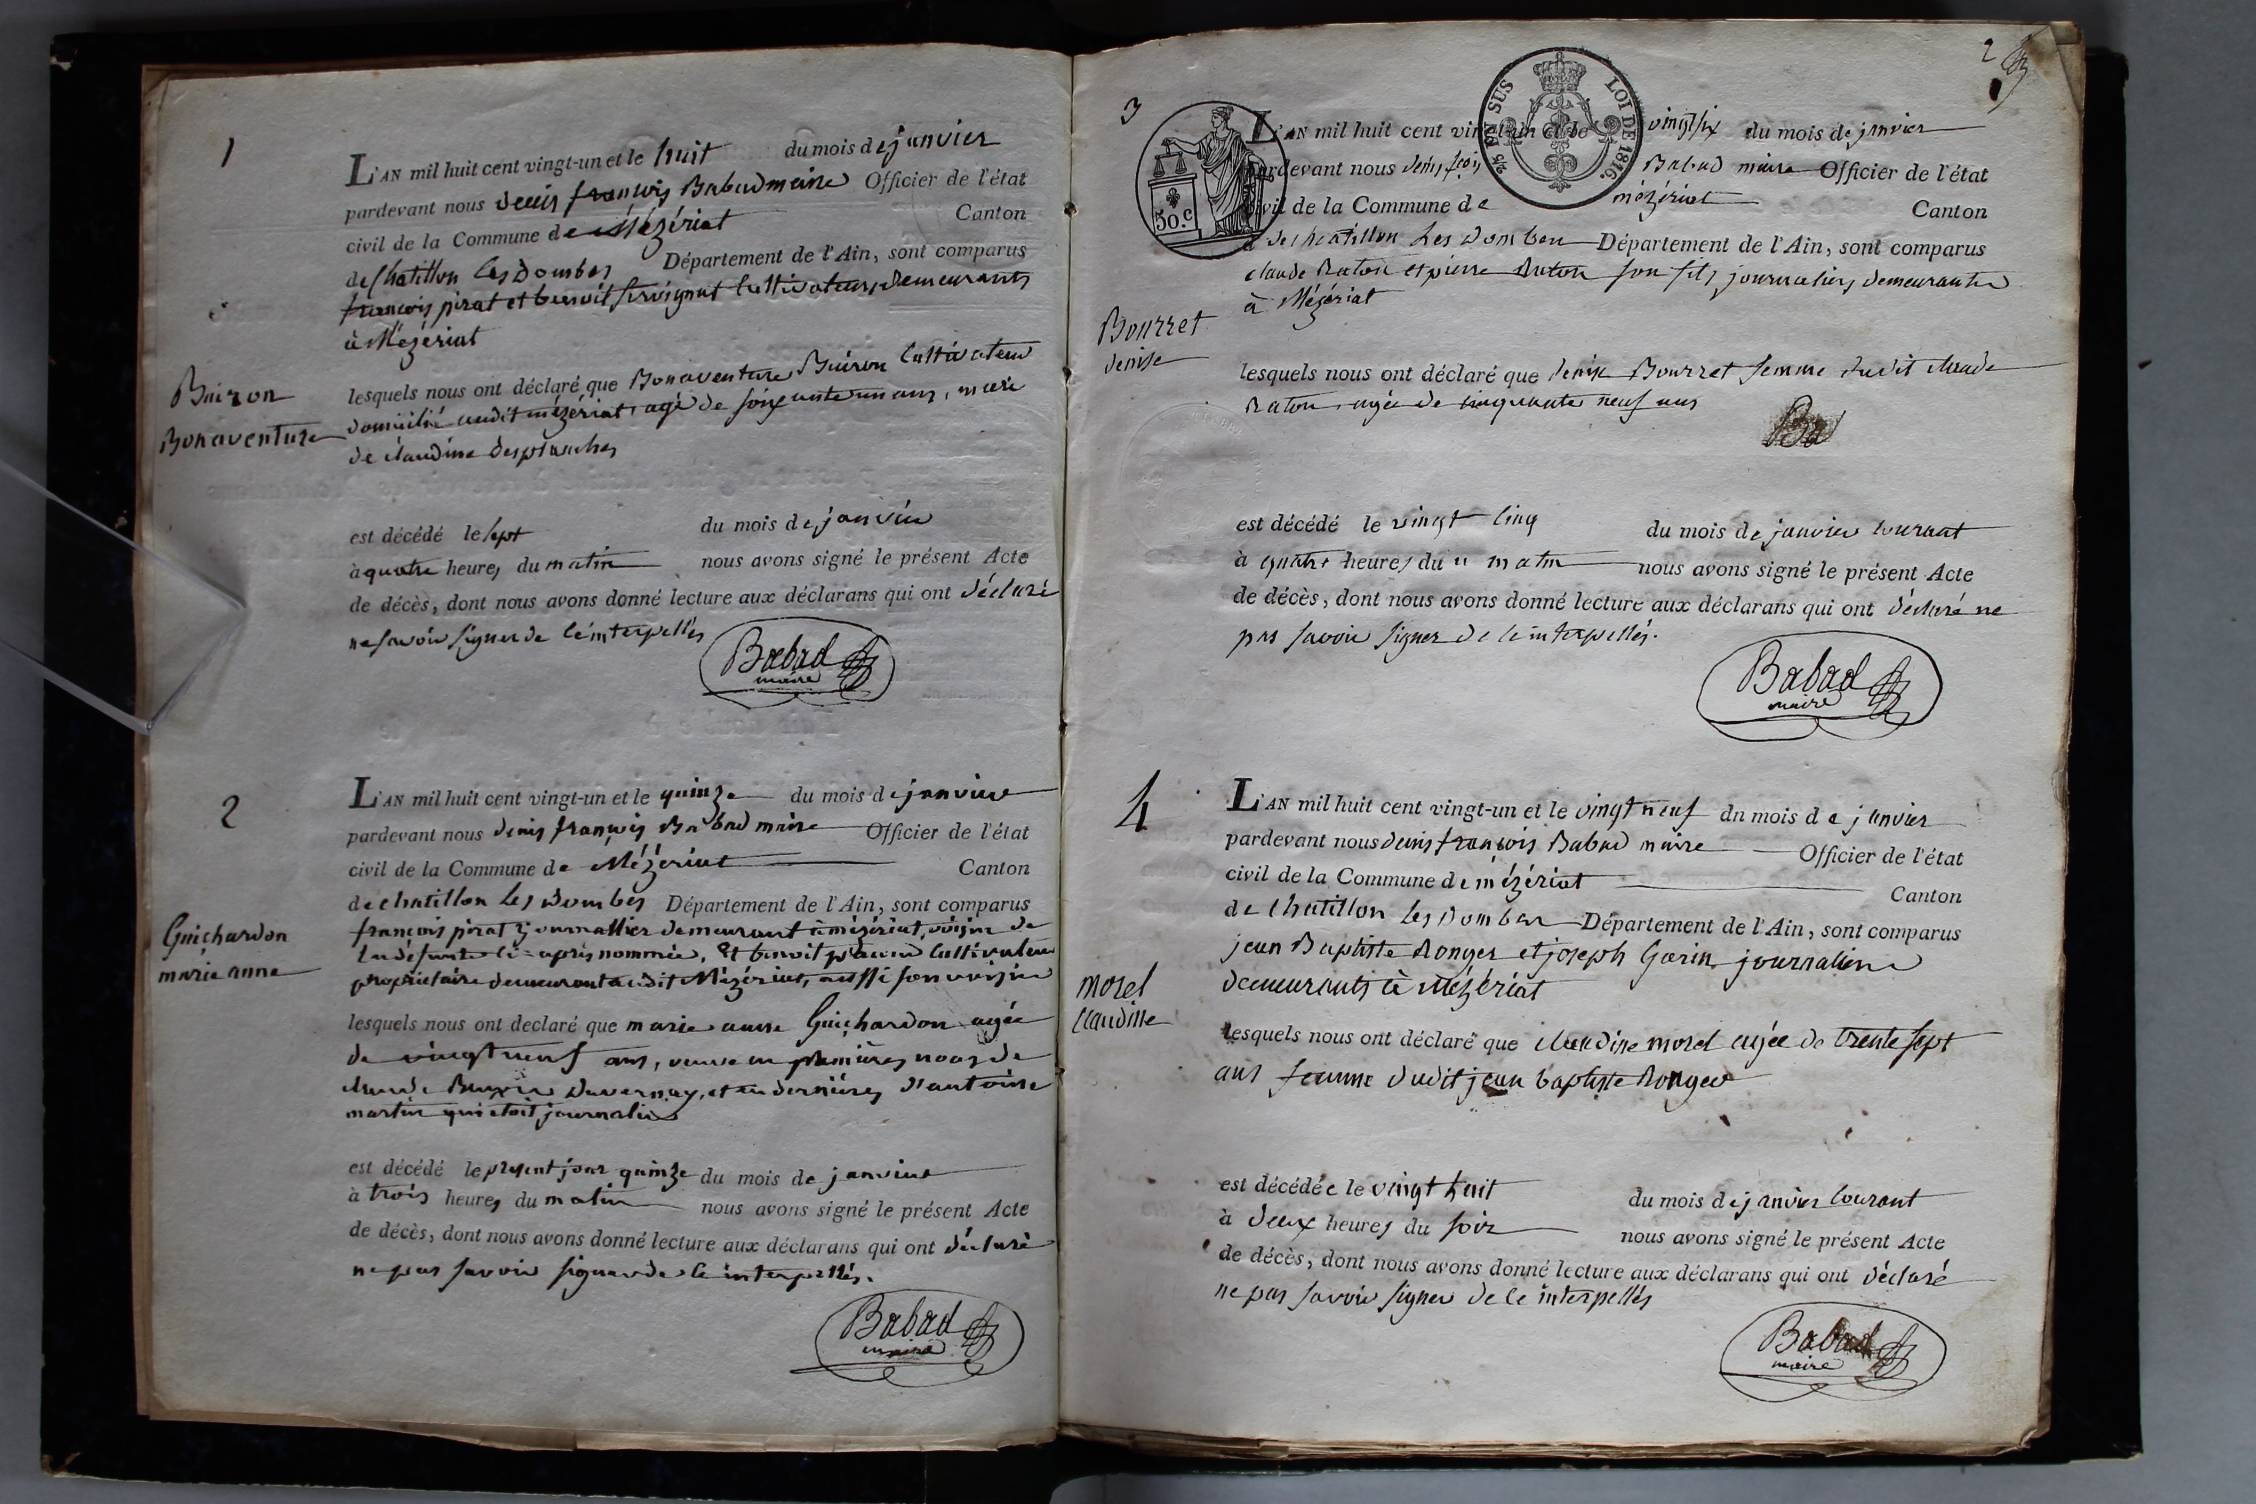 1
L'AN mil huit cent vingt-un et le huit du mois de janvier
pardevant nous denis françois Babad maire Officier de l'état
civil de la Commune de Mézériat Canton
de Chatillon les Dombes Département de l'Ain, sont comparus
françois pirat et benoit cultivateurs demeurants
à Mézériat
Buiron
Bonaventure
lesquels nous ont déclaré que Bonaventure Buiron Cultivateur
domicilié audit mézériat, agé de soixante un ans, marié
de claudine desplanches
est décédé le sept du mois de janvier
à quatre heures du matin nous avons signé le présent Acte
de décès, dont nous avons donné lecture aux déclarans qui ont déclaré
ne savoir signer de ce interpellés
Babad
maire
2
L'AN mil huit cent vingt-un et le quinze du mois de janvier
pardevant nous denis françois Babad maire Officier de l'état
civil de la Commune de Mézériat Canton
de chatillon les Dombes Département de l'Ain, sont comparus
françois pirat journallier demeurant à mézériat, voisin de
la défunte ci-après nommée, Et benoit Cultivateur
propriétaire demeurant audit Mézériat, aussi son voisin
Guichardon
marie anne
lesquels nous ont declaré que marie anne Guichardon agée
de vingt neuf ans, veuve en premières noces de
claude Duvernay, et en dernières d'antoine
martin qui etoit journalier
est décédé le present jour quinze du mois de janvier
à trois heures du matin nous avons signé le présent Acte
de décès, dont nous avons donné lecture aux déclarans qui ont déclaré
ne pas savoir signer de ce interpellés.
Babad
maire
2
3
50.c
2/5 EN SUS LOI DE 1816.
L'AN mil huit cent vingt-un et le vingt six du mois de janvier
pardevant nous denis fçois Babad maire Officier de l'état
civil de la Commune de mézériat Canton
de chatillon les Dombes Département de l'Ain, sont comparus
claude Raton et pierre Raton son fils journaliers demeurants
à Mézériat
Bourret
denise
lesquels nous ont déclaré que denise Bourret femme dudit claude
Raton, agée de cinquante neuf ans
Ba
est décédé le vingt cinq du mois de janvier courant
à quatre heures du matin nous avons signé le présent Acte
de décès, dont nous avons donné lecture aux déclarans qui ont déclaré ne
pas savoir signer de ce interpellés.
Babad
maire
4
L'AN mil huit cent vingt-un et le vingt neuf du mois de janvier
pardevant nous denis françois Babad maire Officier de l'état
civil de la Commune de mézériat Canton
de Chatillon les Dombes Département de l'Ain, sont comparus
jean Baptiste Ronger et joseph Gorin journaliers
demeurants à Mézériat
morel
claudine
lesquels nous ont déclaré que claudine morel agée de trente sept
ans femme dudit jean baptiste Ronger
est décédée le vingt huit du mois de janvier courant
à deux heures du soir nous avons signé le présent Acte
de décès, dont nous avons donné lecture aux déclarans qui ont déclaré
ne pas savoir signer de ce interpellés
Babad
maire